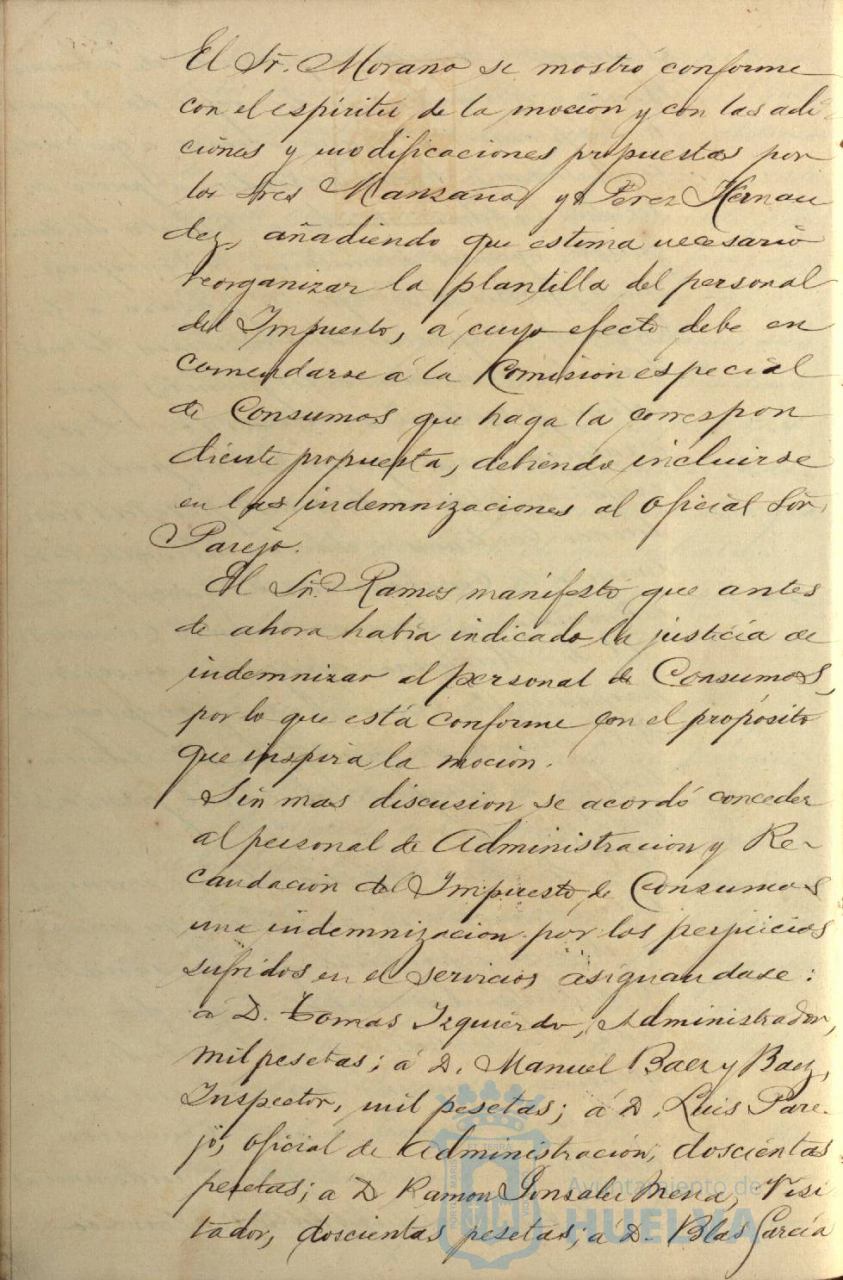 El Sr. Morano se mostró conforme
con el espíritu de la moción y con las adi
ciones y modificaciones propuestas por
los Sres Manzano y Perez Hernan
dez, añadiendo que estima necesario
reorganizar la plantilla del personal
del Impuesto, á cuyo efecto debe en
comendarse á la Comisión especial
de Consumos que haga la correspon
diente propuesta, debiendo incluirse
en las indemnizaciones al oficial Sor.
Parejo.
El Sr. Ramos manifestó que antes
de ahora había indicado la justicia de
indemnizar al personal de Consumos,
por lo que está conforme con el propósito
que inspira la moción.
Sin mas discusion se acordó conceder
al personal de Administracion y Re-
caudación del Impuesto de Consumos
una indemnizacion por los perjuicios
sufridos en el servicios asignandose:
á D. Tomas Izquierdo, Administrador,
mil pesetas; á D. Manuel Baez y Baez,
Inspector, mil pesetas; á D. Luis Pare-
jo, oficial de Administración, doscientas
pesetas; á D Ramon Gonzalez Mena, Visi
tador, doscientas pesetas; á D. Blas García
Ayuntamiento de
HUELVA